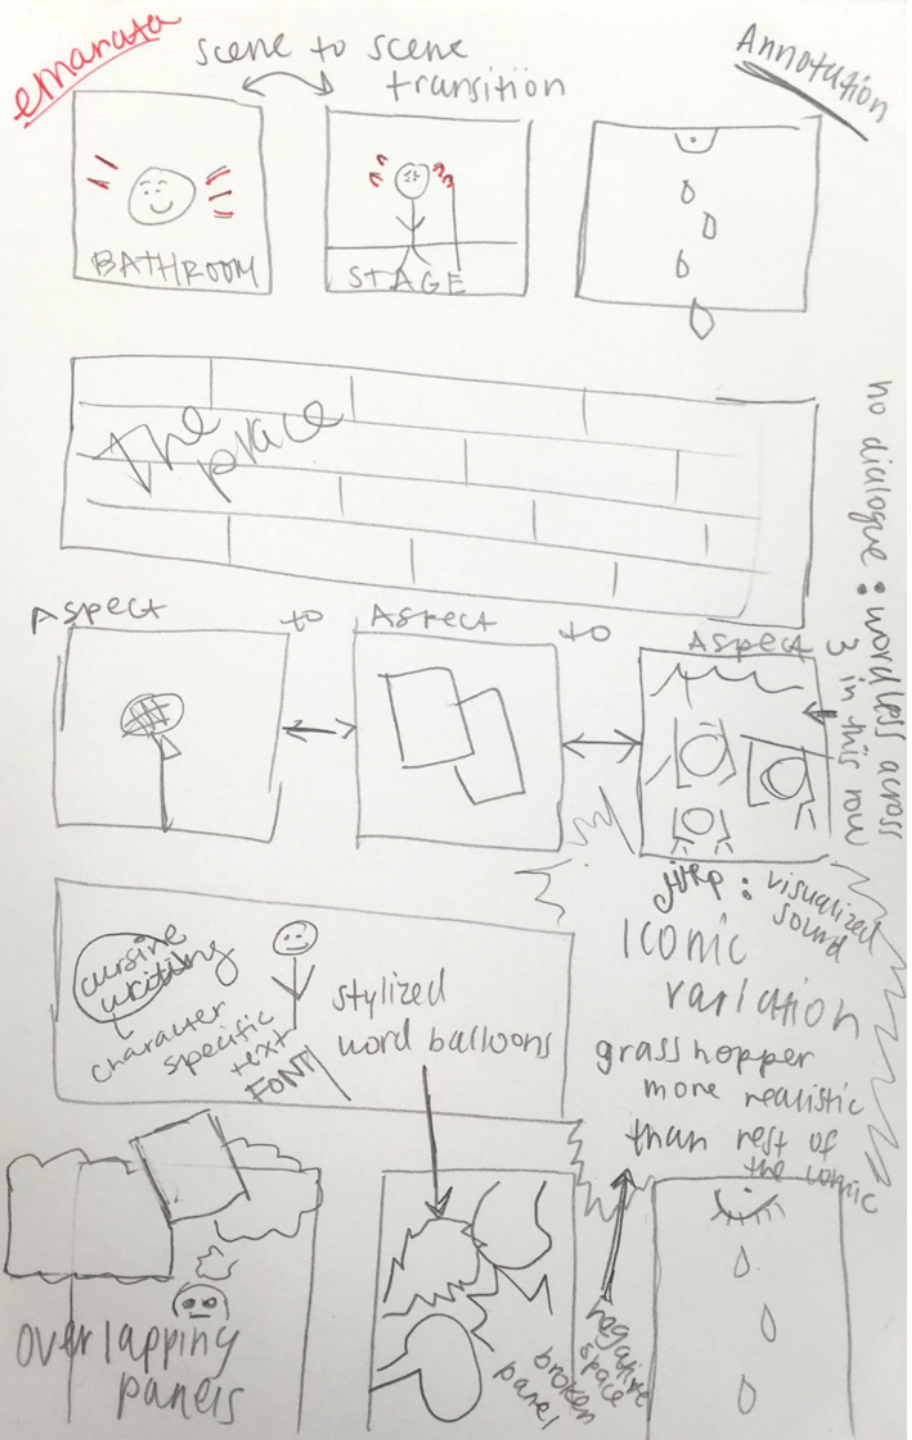 emanata
scene to scene
transition
Annotation
BATHROOM
STAGE
The
place
no dialogue : wordless across
3 in this row
Aspect to Aspect to Aspect
chirp : visualized
sound
Iconic
variation
grasshopper
more realistic
than rest of
the comic
cursive
writing
character
specific
text
FONT
stylized
word balloons
overlapping
panels
broken
panel
negative
space